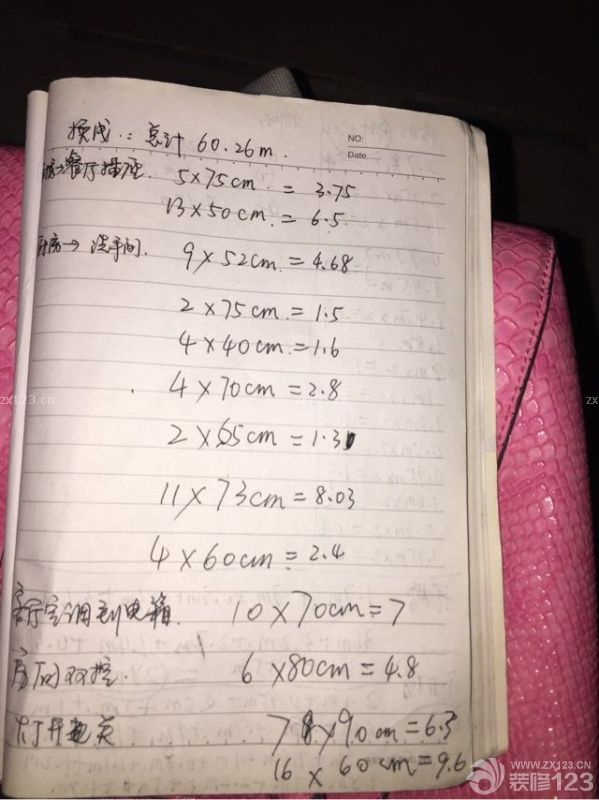 换线:总计 60.26m.
NO:
Date
餐厅插座 5×75cm = 3.75
13×50cm = 6.5
厨房→洗手间. 9×52cm = 4.68
2×75cm = 1.5
4×40cm = 1.6
4×70cm = 2.8
2×65cm = 1.3
11×73cm = 8.03
4×60cm = 2.4
客厅空调到电箱. 10×70cm = 7
房间双控. 6×80cm = 4.8
灯开关 7×90cm = 6.3
16×60cm = 9.6
zx123.cn
WWW.ZX123.CN
装修123